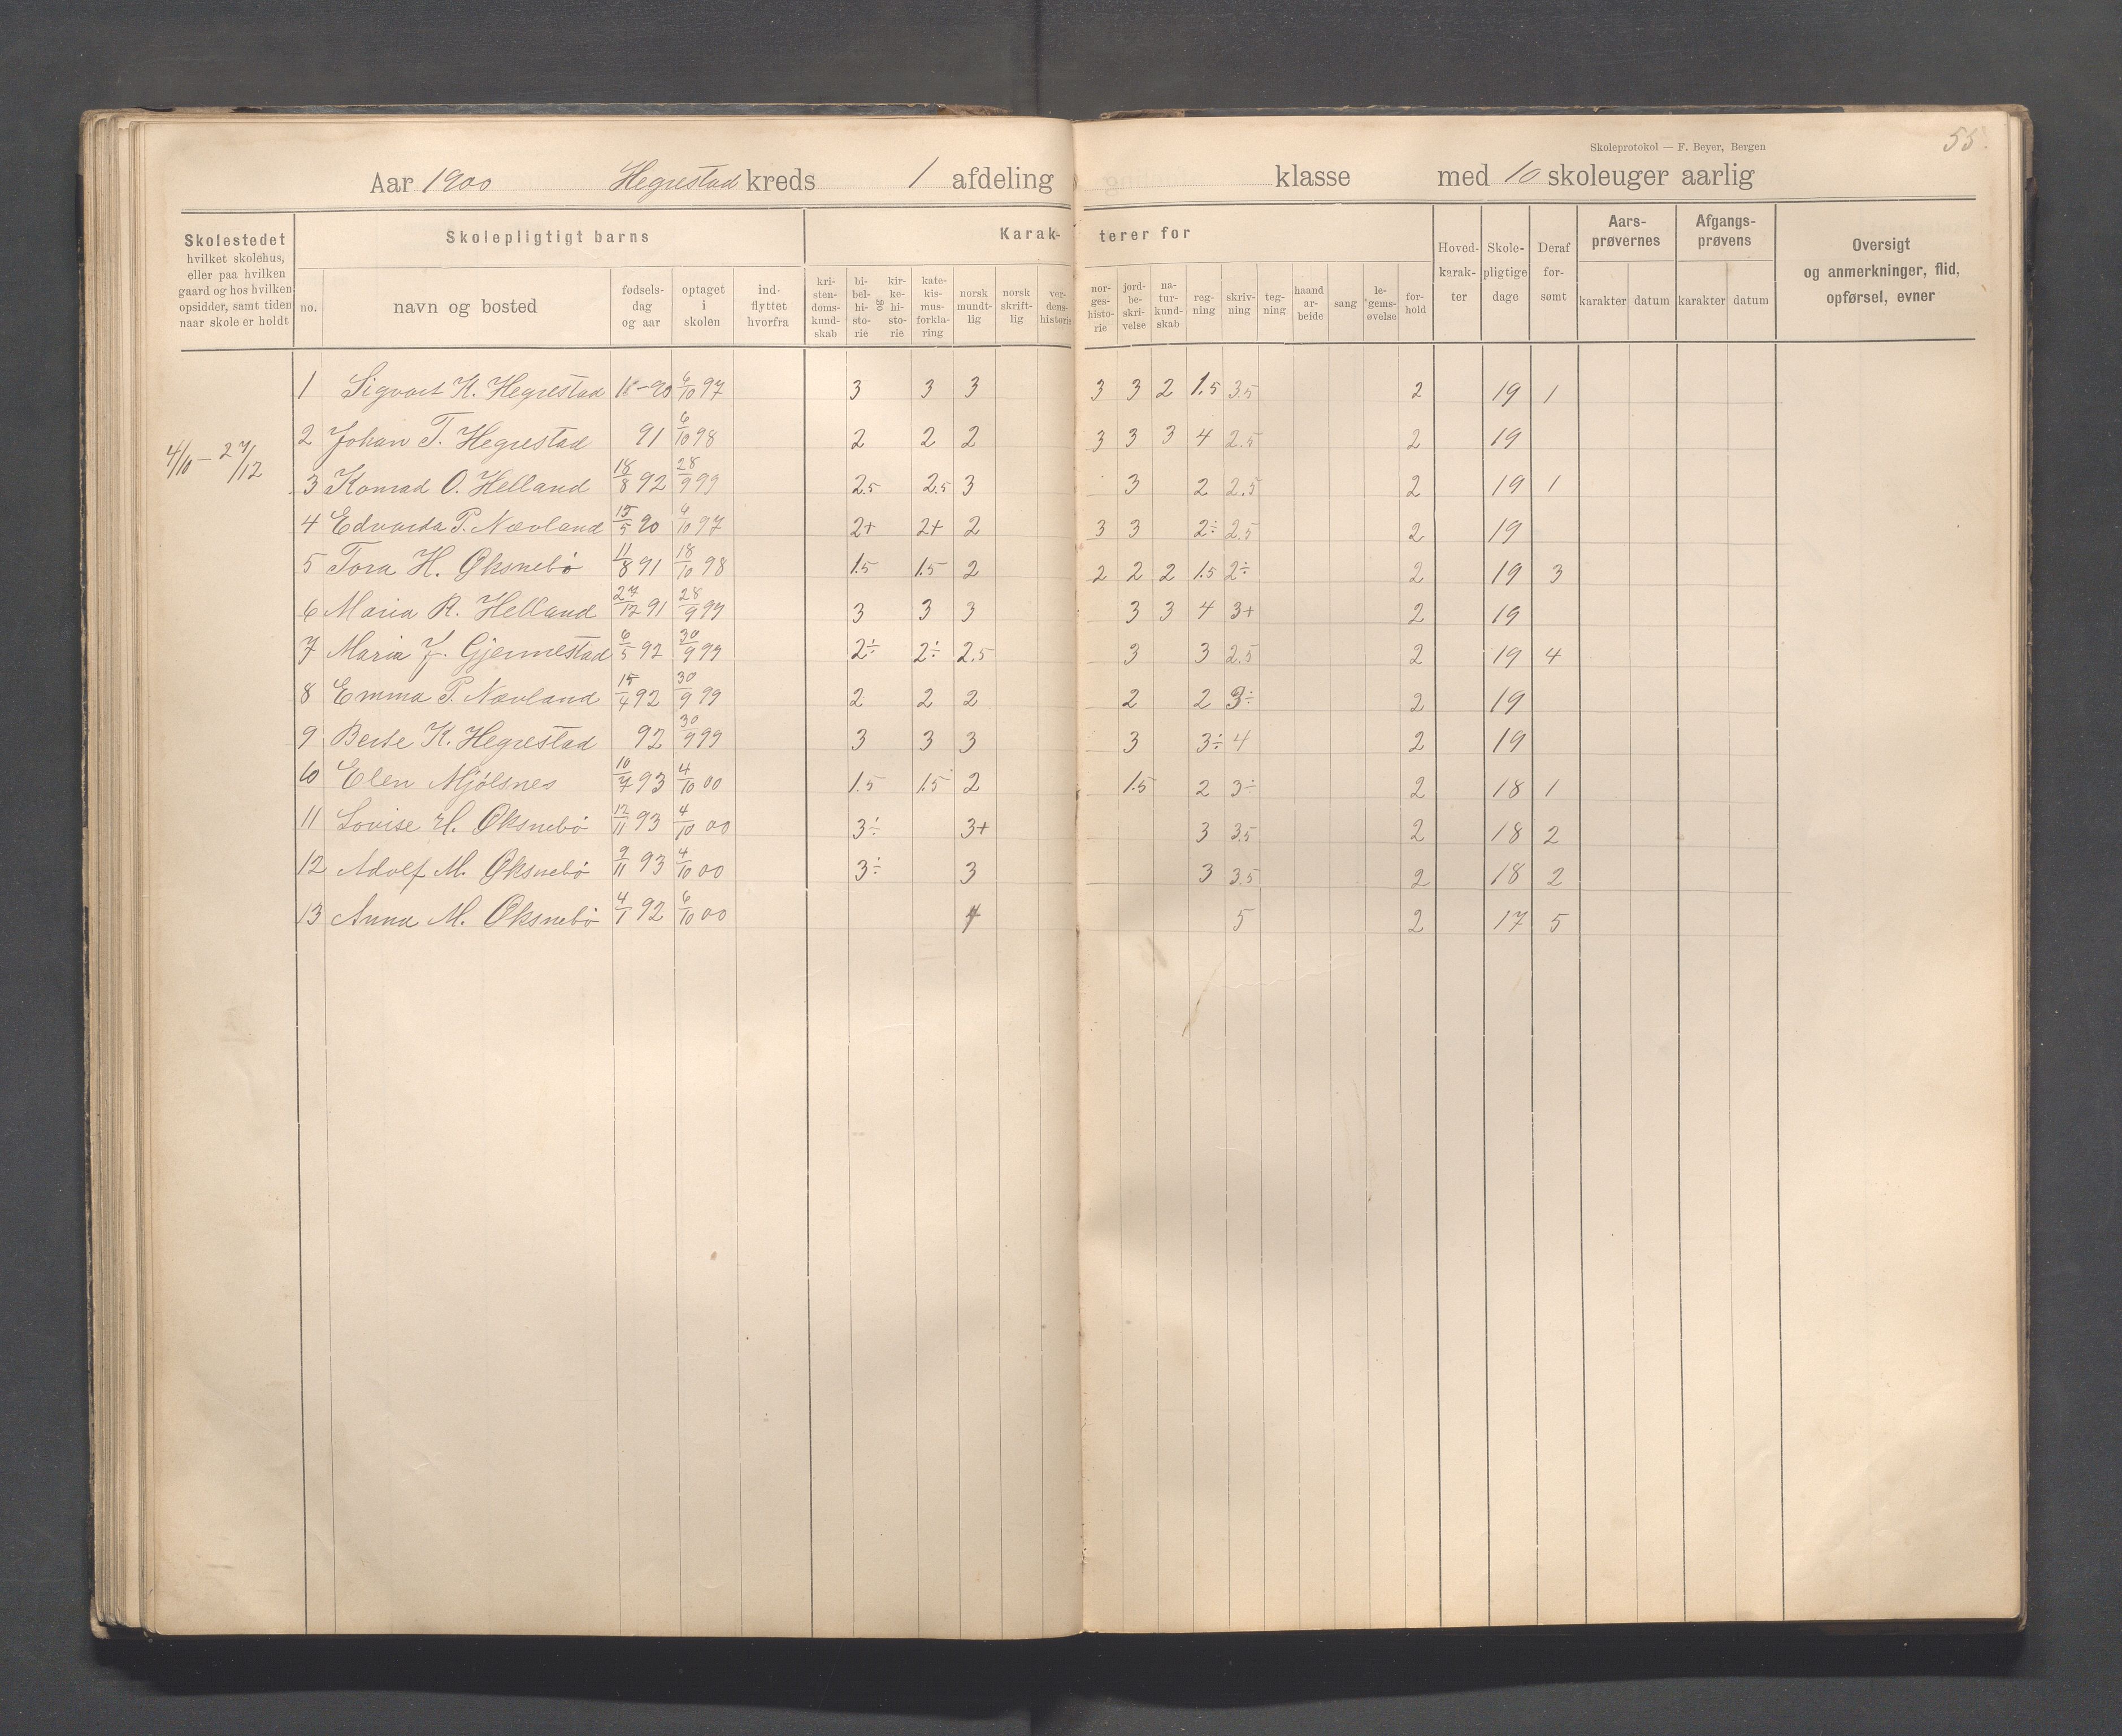 55.
Skoleprotokol — F. Beyer, Bergen
Aar 1900 Hegrestad kreds 1 afdeling klasse med 10 skoleuger aarlig
Skolestedet hvilket skolehus, eller paa hvilken gaard og hos hvilken opsidder, samt tiden naar skole er holdt
Skolepligtigt barns
no. navn og bosted fødsels-dag og aar optaget i skolen ind-flyttet hvorfra
Karak-terer for
kri-sten-doms-kund-skab bi-bel-hi-sto-rie og kir-ke-hi-sto-rie kate-kis-mus-forkla-ring norsk mundt-lig norsk skrift-lig ver-dens-historie nor-ges-histo-rie jord-be-skri-velse na-tur-kund-skab reg-ning skriv-ning teg-ning haand ar-beide sang le-gems-øvelse for-hold
Hoved-karak-ter Skole-pligtige dage Deraf for-sømt
Aars-prøvernes karakter datum
Afgangs-prøvens karakter datum
Oversigt og anmerkninger, flid, opførsel, evner
4/10 – 27/12
1 Sigvart K. Hegrestad 90 6/10 97 3 3 3 3 3 2 1.5 3.5 2 19 1
2 Johan T. Hegrestad 91 6/10 98 2 2 2 3 3 3 4 2.5 2 19
3 Konrad O. Helland 18/8 92 28/9 99 2.5 2.5 3 3 2 2.5 2 19 1
4 Edvarda P. Nævland 15/5 90 6/10 97 2+ 2+ 2 3 3 2÷ 2.5 2 19
5 Tora H. Øksnebø 11/8 91 18/10 98 1.5 1.5 2 2 2 2 1.5 2÷ 2 19 3
6 Maria R. Helland 27/12 91 28/9 99 3 3 3 3 3 4 3+ 2 19
7 Maria J. Gjermestad 6/5 92 30/9 99 2÷ 2÷ 2.5 3 3 2.5 2 19 4
8 Emma P. Nævland 15/4 92 30/9 99 2 2 2 2 2 3÷ 2 19
9 Berte K. Hegrestad 92 30/9 99 3 3 3 3 3÷ 4 2 19
10 Elen Mjølsnes 10/7 93 4/10 00 1.5 1.5 2 1.5 2 3÷ 2 18 1
11 Lovise H. Øksnebø 12/11 93 4/10 00 3÷ 3+ 3 3.5 2 18 2
12 Adolf M. Øksnebø 9/11 93 4/10 00 3÷ 3 3 3.5 2 18 2
13 Anna M. Øksnebø 4/1 92 6/10 00 4 5 2 17 5